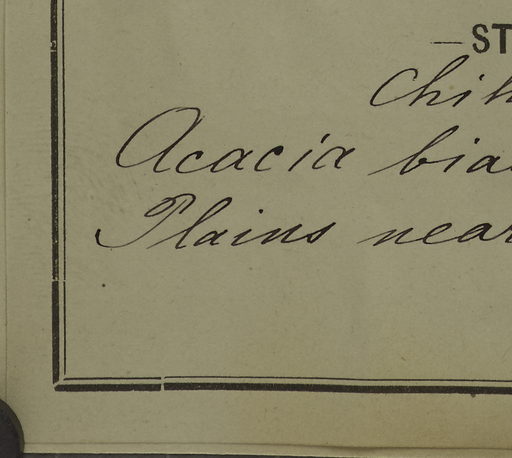 —ST
Chih
Acacia bia
Plains near